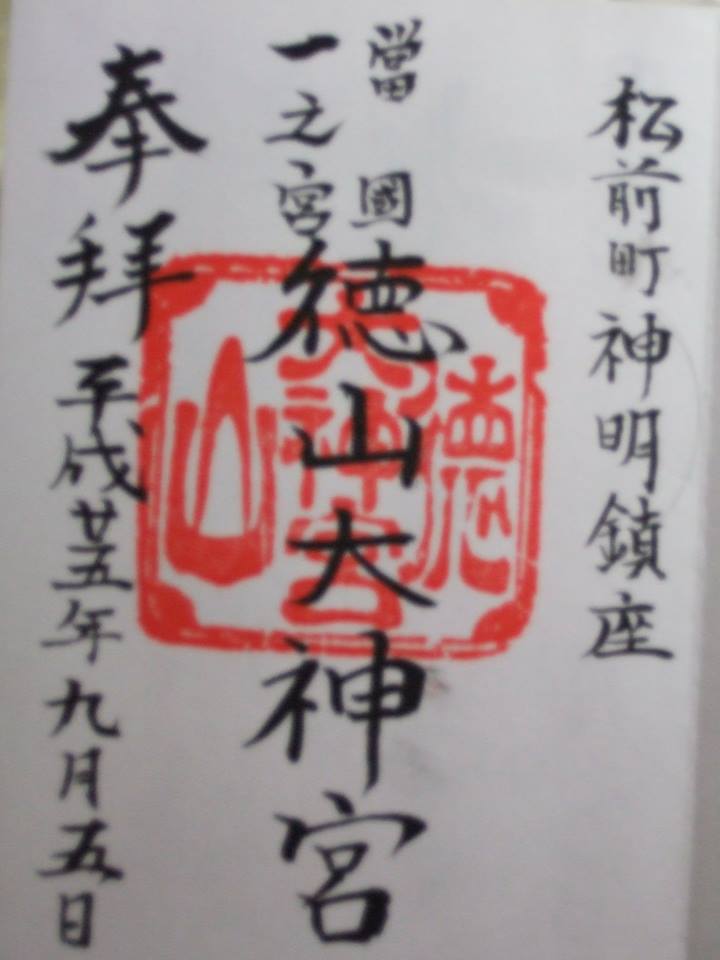 松前町神明鎮座
當國
一之宮
徳山大神宮
徳
大神宮
山
奉拝
平成廿五年九月五日